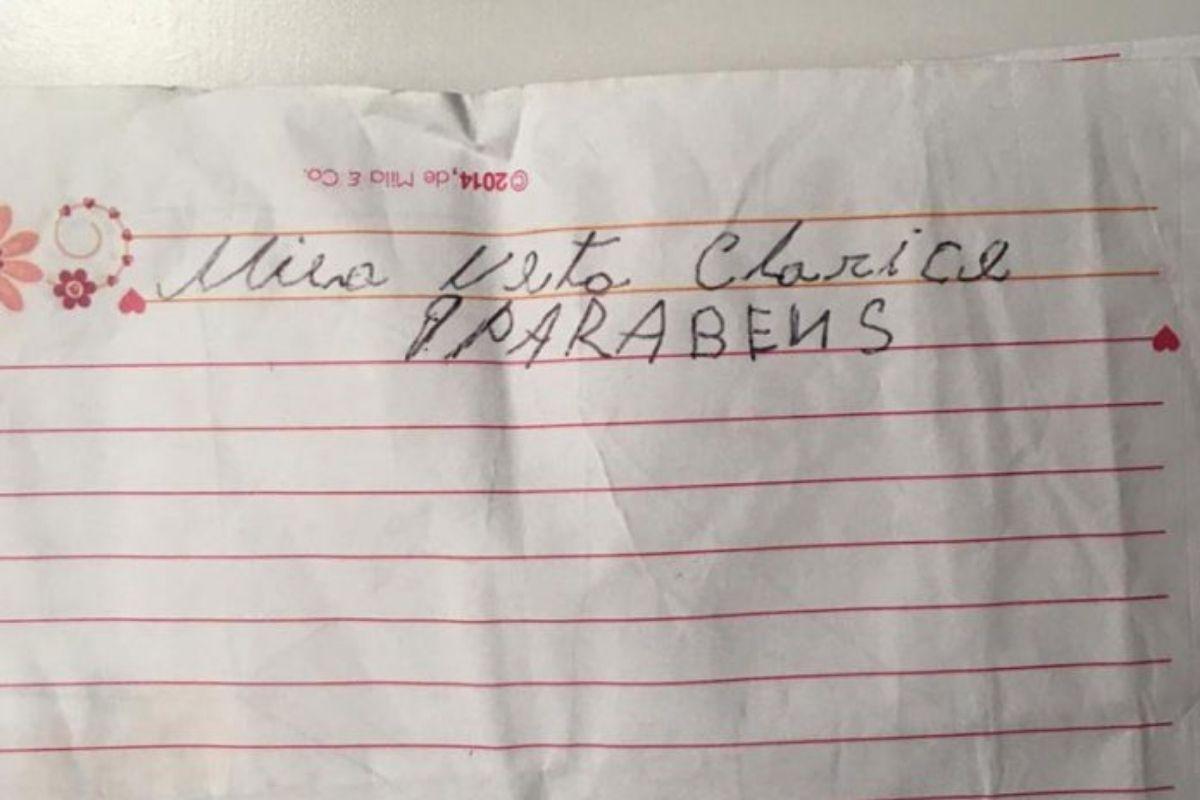 ©2014, de Milla & Co.
Miea Neta Clarice
PPARABENS